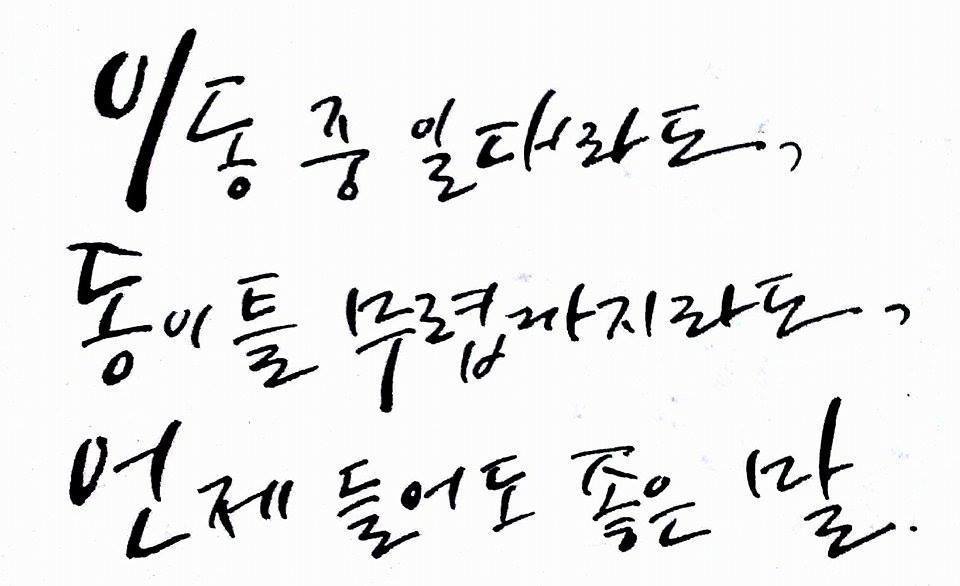 이동 중 일때라도,
동이 틀 무렵까지라도,
언제 들어도 좋은 말.